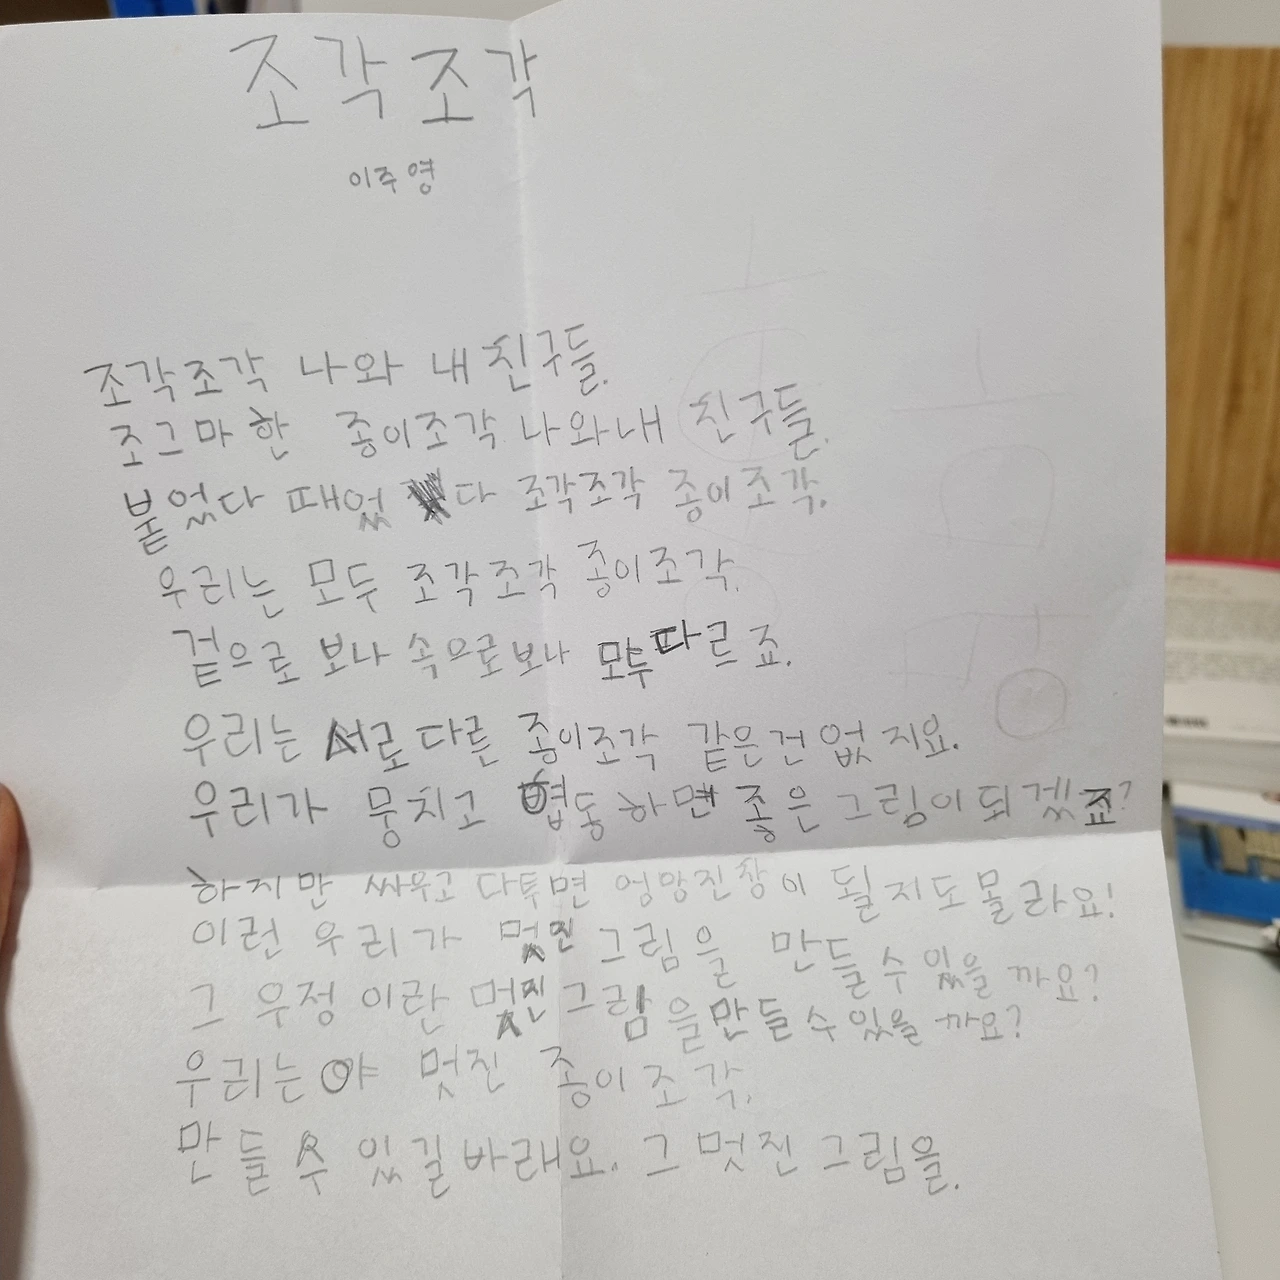 조각조각
이주영
조각조각 나와 내 친구들.
조그마한 종이조각 나와내 친구들.
붙었다 때었다 조각조각 종이조각.
우리는 모두 조각조각 종이조각.
겉으로 보나 속으로보나 모두따르죠.
우리는 서로다른 종이조각 같은건 없지요.
우리가 뭉치고 협동하면 좋은 그림이되겠죠?
하지만 싸우고 다투면 엉망진창이 될지도몰라요!
이런 우리가 멋진 그림을 만들수있을까요?
그 우정이란 멋진그림을만들수있을까요?
우리는야 멋진 종이조각.
만들수 있길바래요. 그 멋진 그림을.